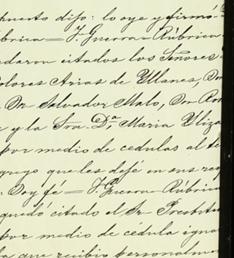 puesto dijo: lo oye y firmo
úbrica = J. Guerra = Rúbrica
daron citados los Señores
olores Arias de Ullanes, Dn
n Dn Salvador Malo, Dn Ra
e y la Sra. Da. Maria Yliza
por medio de cedulas al te
que les dejé en sus res
. Doy fe = J. Guerra = Rúbrica
quedó citado el Sr
por medio de cedula igual
la que recibio personalmen